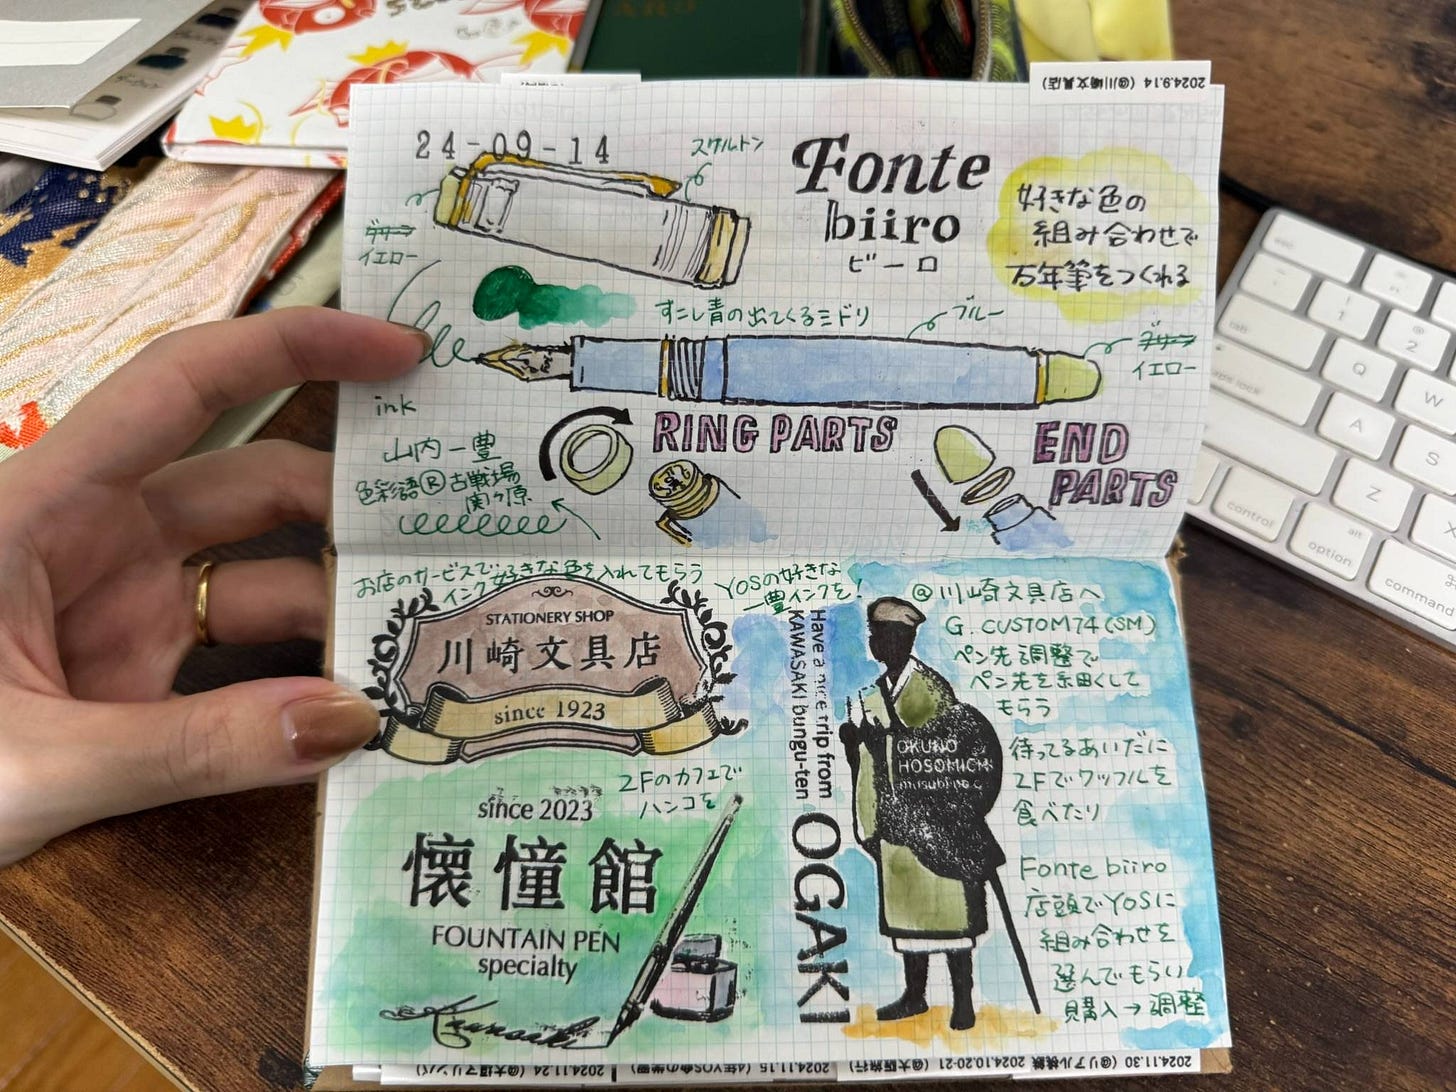 2024.9.14 (@川崎文具店)
24-09-14
スケルトン
イエロー
Fonte
biiro
ビーロ
好きな色の
組み合わせで
万年筆をつくれる
すこし青の出てくるミドリ
ブルー
イエロー
ink
山内一豊
色彩語®古戦場
関ヶ原
RING PARTS
END
PARTS
お店のサービスで好きな色を入れてもらう
インク
YOSの好きな
一豊インクを!
STATIONERY SHOP
川崎文具店
since 1923
2Fのカフェで
ハンコを
since 2023
懐憧館
FOUNTAIN PEN
specialty
Kawasaki
Have a nice trip from
KAWASAKI bungu-ten
OGAKI
OKUNO
HOSOMICHI
musubi no c
@川崎文具店へ
G. CUSTOM74(SM)
ペン先調整で
ペン先を細くして
もらう
待ってるあいだに
2Fでワッフルを
食べたり
Fonte biiro
店頭でYOSに
組み合わせを
選んでもらい
購入→調整
2024.11.24 (@大垣マリンバ)
2024.11.15
2024.10.20-21 (@大阪旅行)
2024.11.30
esc
tab
caps lock
control
alt
option
command
1
2
Q
W
A
S
Z
X